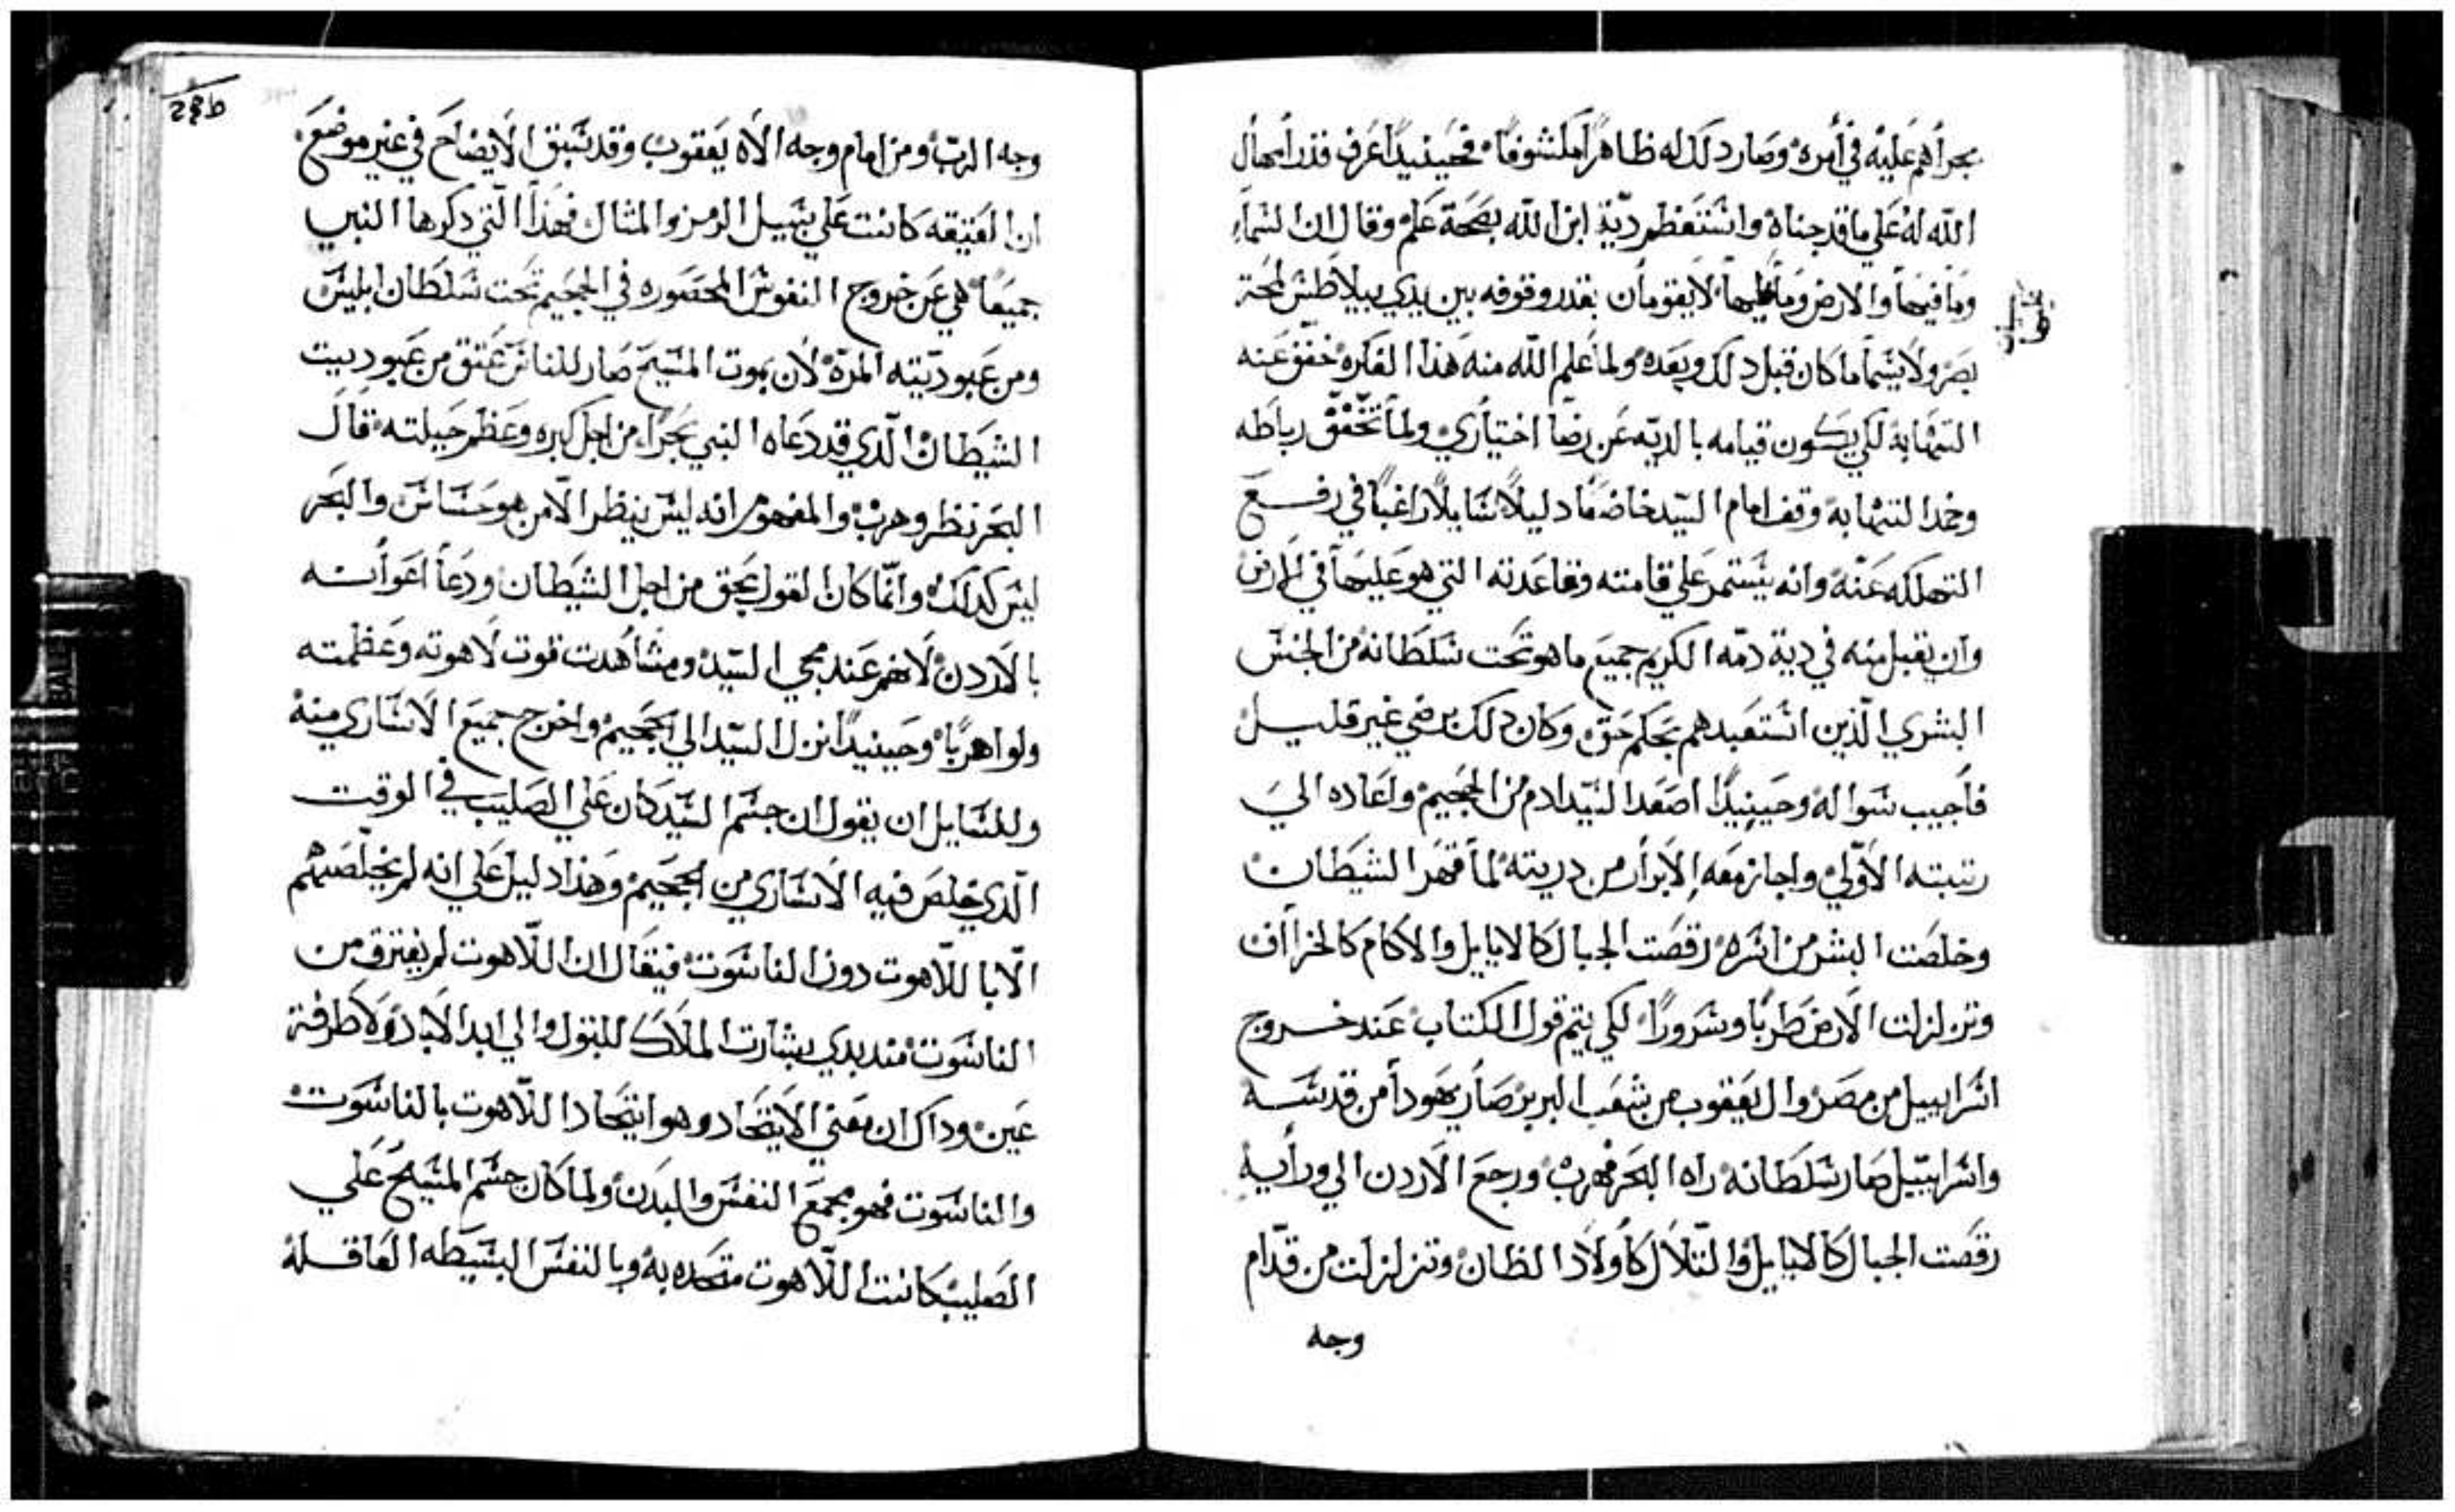 بجرأهم عليه في أمره وصار دلك له ظاهرًا مكشوفًا فحينيدًا عرف قدر أمهال
الله له علي ما قد جناه واستعظم دية ابن الله بصحة علم وقال ان السماء
وما فيها والارض وما عليها لا يقومان بقدر وقوفه بين يدي بيلاطس لمحة
بصر ولا سيما ما كان قبل دلك وبعده ولما علم الله منه هذا الفكره خفف عنه
التهابه لكي يكون قيامه بالديه عن رضا اختياري ولما تخفف رباطه
وخمد التهابه وقف امام السيد خاضعًا دليلًا سايلًا راغبًا في رفع
التهلكه عنه وانه يستمر علي قامته وقاعدته التي هو عليها في الارض
وان يقبل منه في دية دمه الكريم جميع ما هو تحت سلطانه من الجنس
البشري الذين استعبدهم بحكم حق وكان دلك برضي غير قليل
فأجيب سواله وحينيدًا اصعد السيد ادم من الجحيم واعاده الي
رتبته الأولي واجاز معه الابرار من دريته لما قهر الشيطان
وخلصت البشر من اسره رقصت الجبال كالايايل والاكام كالخراف
وتزلزلت الارض طربًا وسرورًا لكي يتم قول الكتاب عند خروج
اسراييل من مصر وال يعقوب من شعب البربر صار يهودا من قدسه
واسراييل صار سلطانه راه البحر فهرب ورجع الاردن الي ورأيه
رقصت الجبال كالايايل والتلال كأولاد الظان وتزلزلت من قدام
وجه
وجه الرب ومن امام وجه الاه يعقوب وقد سبق الايضاح في غير موضع
ان العتيقه كانت علي سبيل الرمز والمثال فهذا التي دكرها النبي
جميعًا هي عن خروج النفوس المحصوره في الجحيم تحت سلطان ابليس
ومن عبوديته المرة لأن بموت المسيح صار للناس عتق من عبوديت
الشيطان الدي قد دعاه النبي بحرًا من اجل كبره وعظم حيلته قال
البحر نظر وهرب والمفهوم انه ليس ينظر الا من هو حساس والبحر
ليس كدلك وانما كان القول بحق من اجل الشيطان ودعا اعوانه
بالاردن لانهم عند مجي السيد ومشاهدت قوت لاهوته وعظمته
ولوا هربًا وحينيدًا نزل السيد الي الجحيم واخرج جميع الاساري منه
وللسايل ان يقول ان جسم السيد كان علي الصليب في الوقت
الدي خلص فيه الاساري من الجحيم وهذا دليل علي انه لم يخلصهم
الا باللاهوت دون الناسوت فيقال ان اللاهوت لم يفترق من
الناسوت مند بدي بشارت الملاك للبتول والي ابد الاباد ولا طرفة
عين وداك ان معني الايتحاد وهو ايتحاد اللاهوت بالناسوت
والناسوت فهو مجمع النفس والبدن ولما كان جسم المسيح علي
الصليب كانت اللاهوت متحده به وبالنفس البسيطه العاقله